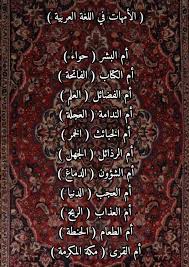 ( الأمهات في اللغة العربية )
أم البشر ( حواء )
أم الكتاب ( الفاتحة )
أم الفضائل ( العلم )
أم الندامة ( العجلة )
أم الخبائث ( الخمر )
أم الرذائل ( الجهل )
أم الشؤون ( الدماغ )
أم العجب ( الدنيا )
أم العذاب ( الريح )
أم الطعام ( الحنطة )
أم القرى ( مكة المكرمة )